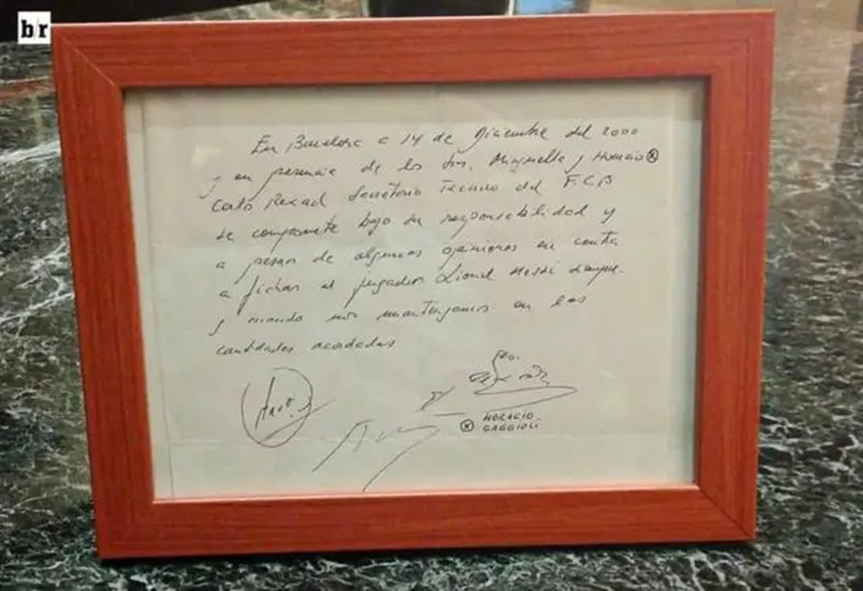 br
En Barcelona a 14 de Diciembre del 2000
y en presencia de los Srs. Minguella y Horacio ⊗
Carlo Rexach Secretario Técnico del F.C.B
se compromete bajo su responsabilidad y
a pesar de algunas opiniones en contra
a fichar al jugador Lionel Messi siempre
y cuando nos mantengamos en las
cantidades acordadas
⊗ HORACIO
GAGGIOLI